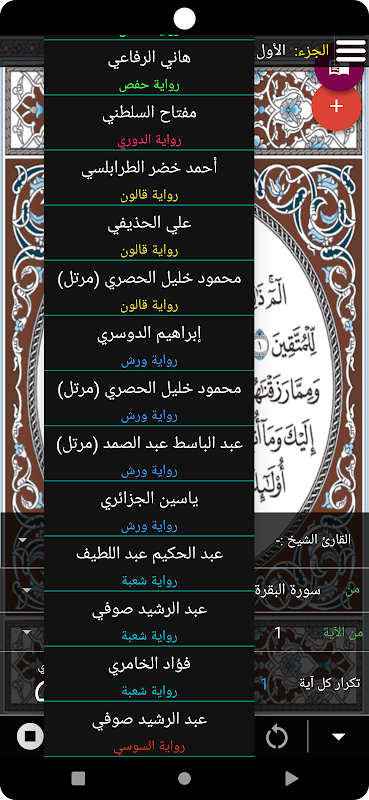 الجزء: الأول
هاني الرفاعي
رواية حفص
مفتاح السلطني
رواية الدوري
أحمد خضر الطرابلسي
رواية قالون
علي الحذيفي
رواية قالون
محمود خليل الحصري (مرتل)
رواية قالون
إبراهيم الدوسري
رواية ورش
محمود خليل الحصري (مرتل)
رواية ورش
عبد الباسط عبد الصمد (مرتل)
رواية ورش
ياسين الجزائري
رواية ورش
عبد الحكيم عبد اللطيف
رواية شعبة
عبد الرشيد صوفي
رواية شعبة
فؤاد الخامري
رواية شعبة
عبد الرشيد صوفي
رواية السوسي
الٓمٓ
لِّلۡمُتَّقِينَ
وَمِمَّا رَزَقۡنَٰهُمۡ
إِلَيۡكَ وَمَآ
القارئ الشيخ :-
من سورة البقرة
من الآية 1
تكرار كل آية 1